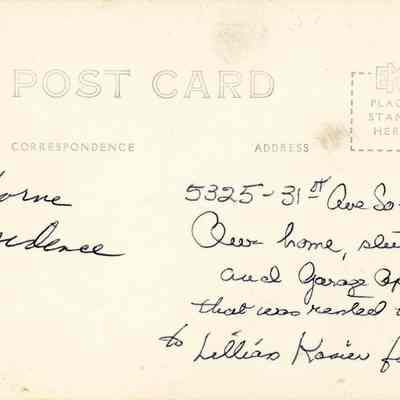 POST CARD
EKC
PLACE
STAMP
HERE
CORRESPONDENCE
ADDRESS
orne
dence
5325-31st Ave So
Our home,
and Garage Ap
that was rented
to Lillian Kosier